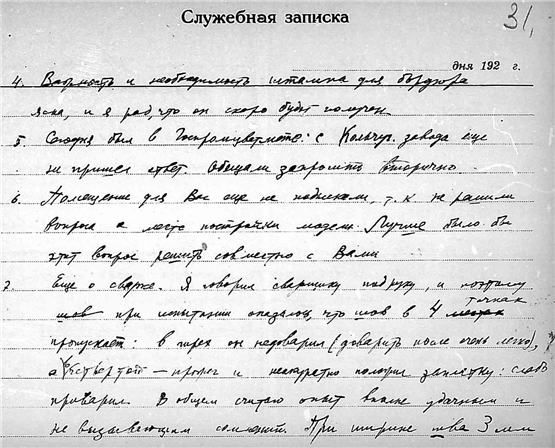 Служебная записка
31,
дня 192 г.
4. Важность и необходимость штампа для бордюра
ясна, и я рад, что он скоро будет получен
5. Сегодня был в Госпромцветмете: с Кольчуг. завода еще
не пришел ответ. Обещали запросить вторично
6. Помещение для Вас еще не подыскали, т.к. не решили
вопроса о месте постройки модели. Лучше было бы
этот вопрос решить совместно с Вами
7. Еще о сварке. Я говорил сварщику под руку, и поэтому
шов при испытании оказалось, что шов в 4 местах точках
пропускает: в трех он недоварил (доварить после очень легко),
а в четвертой — прожег и неаккуратно положил заплетку: слабо
проварил. В общем считаю опыт вполне удачным и
не вызывающим сомнений. При ширине шва 3 мм